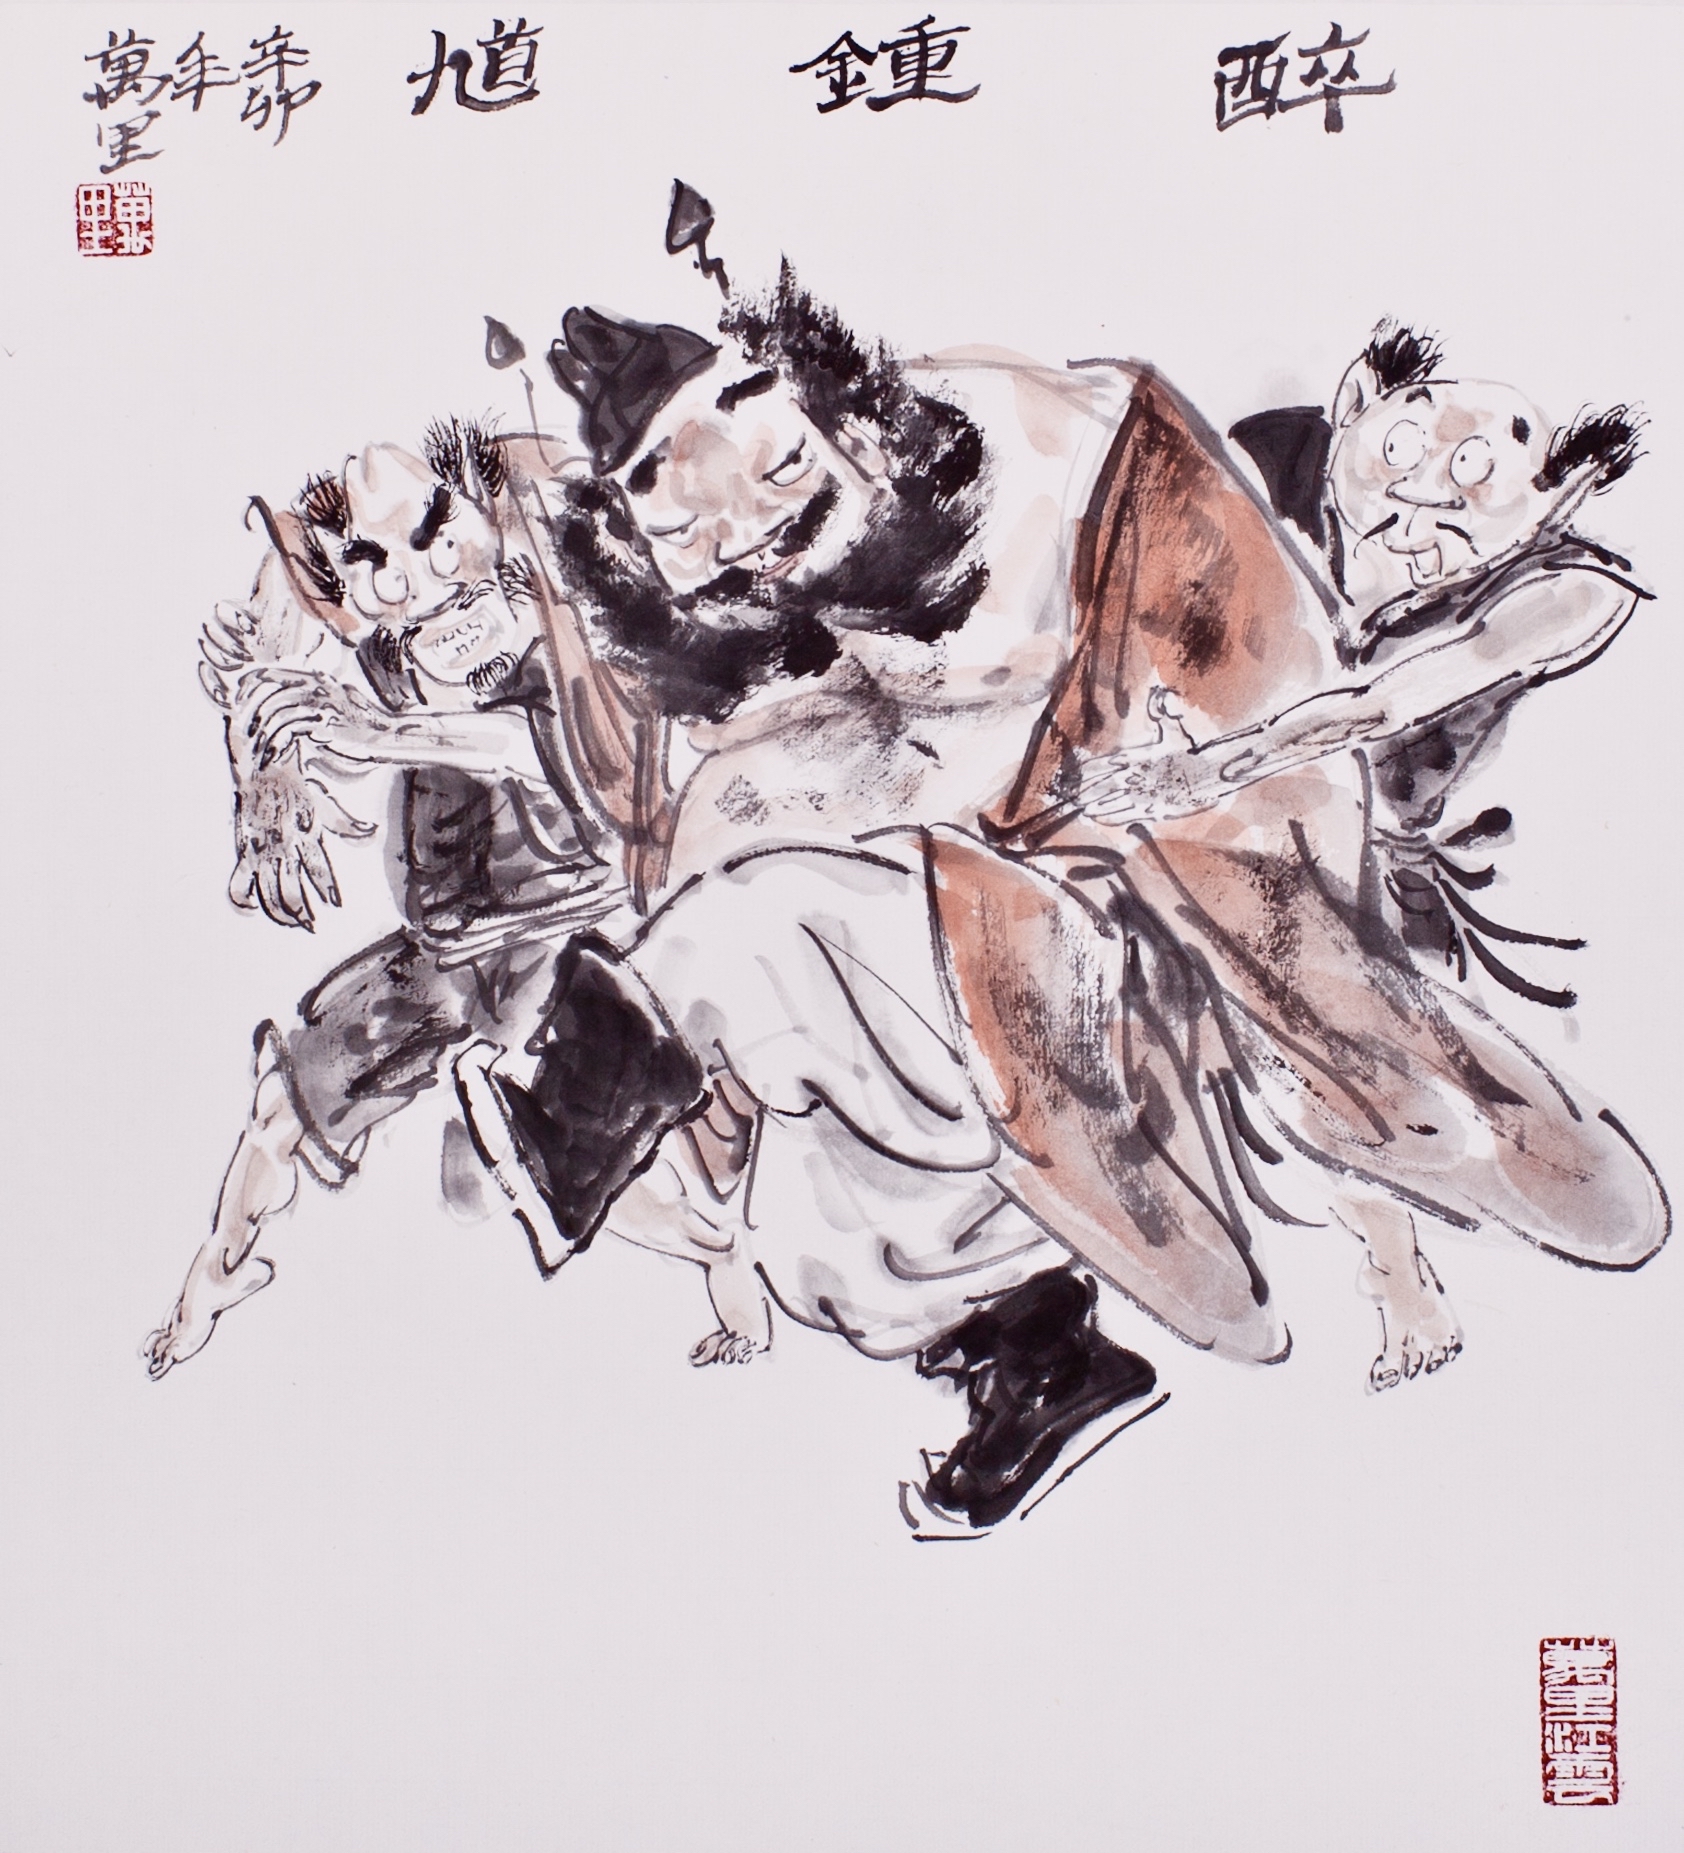 醉鍾馗
辛卯
年
萬里